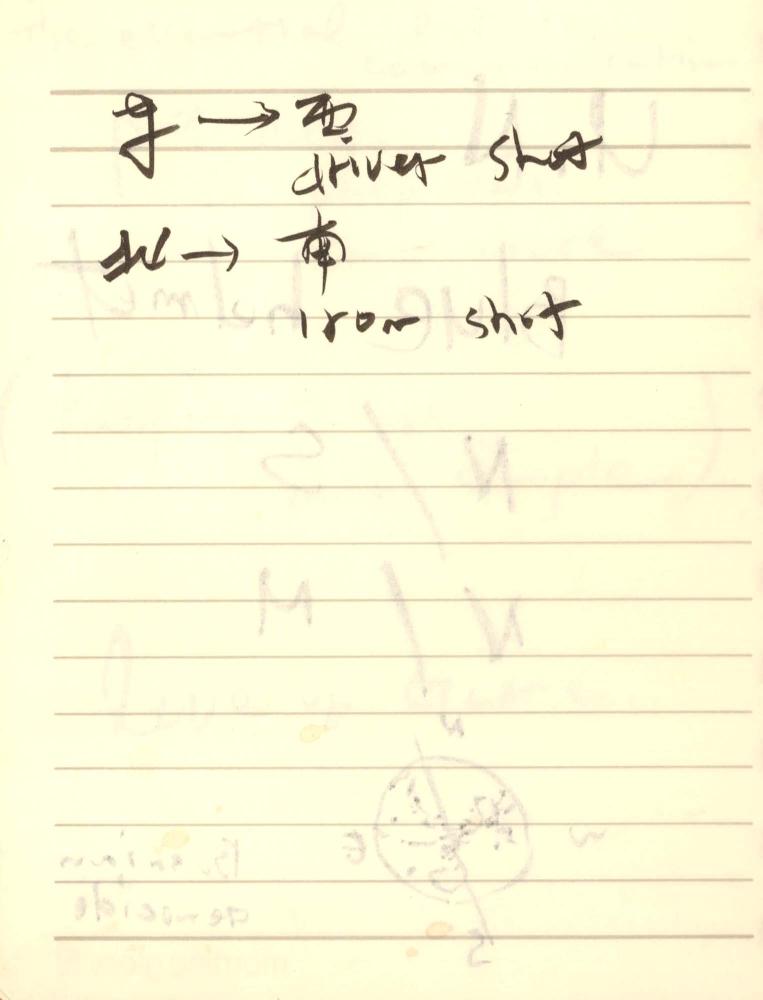 东 → 西
driver shot
北 → 南
iron shot